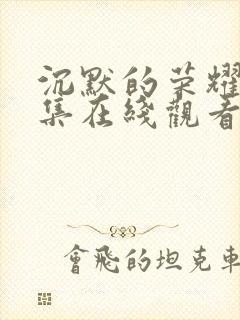 沉默的荣耀
集在綫觀看
會飛的坦克車